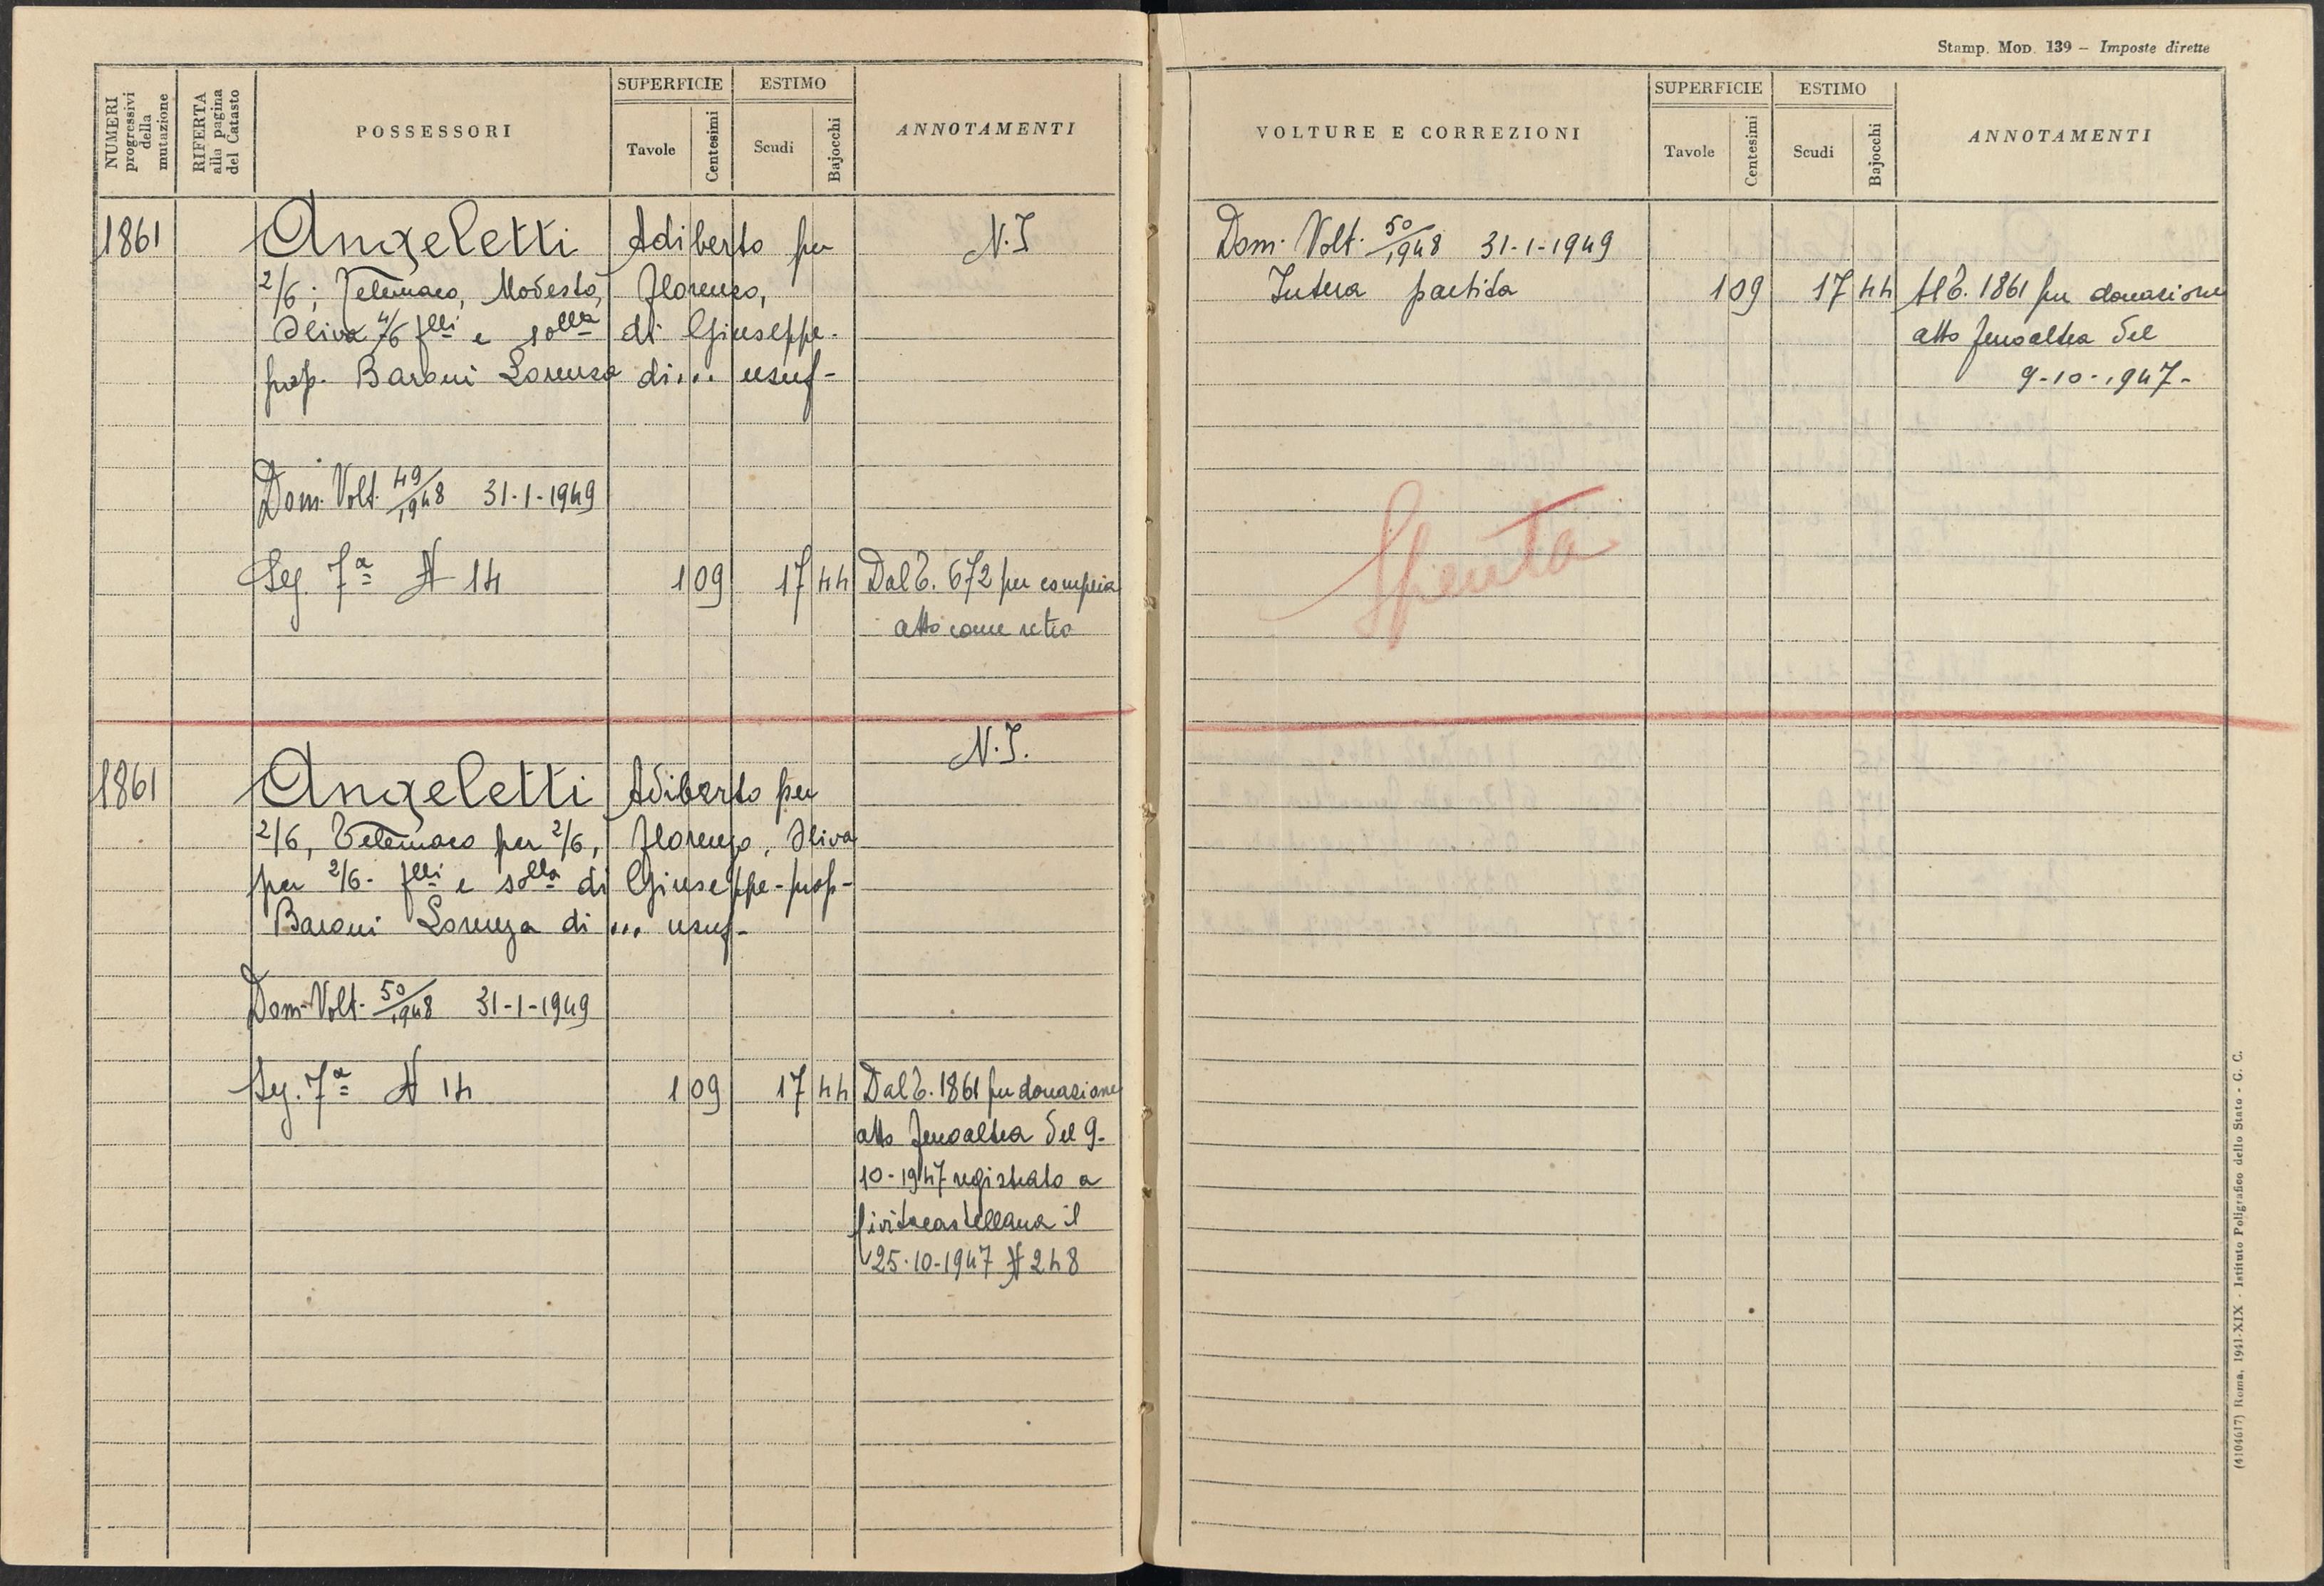 NUMERI progressivi della mutazione
RIFERTA alla pagina del Catasto
POSSESSORI
SUPERFICIE
Tavole
Centesimi
ESTIMO
Scudi
Bajocchi
ANNOTAMENTI
1861 Angeletti Adiberto per N.I
2/6; Telemaco, Modesto, Florenzo,
Oliva 4/6 flli e solla di Giuseppe-
prop. Baroni Lorenza di... usuf-
Dom. Volt. 49/1948 31-1-1949
Sez. 7a N 14 1 09 17 44 Dal T. 672 per compra
atto come retro
N.I.
1861 Angeletti Adiberto per
2/6, Telemaco per 2/6, Florenzo, Oliva
per 2/6- flli e solla di Giuseppe-prop-
Baroni Lorenza di ... usuf-
Dom-Volt- 50/1948 31-1-1949
Sez. 7a N 14 1 09 17 44 Dal T. 1861 per donazione
atto Fenoaltea del 9-
10-1947 registrato a
Civitacastellana il
25-10-1947 N 248
Stamp. Mod. 139 – Imposte dirette
VOLTURE E CORREZIONI
SUPERFICIE
Tavole
Centesimi
ESTIMO
Scudi
Bajocchi
ANNOTAMENTI
Dom- Volt- 50/1948 31-1-1949
Intera partita 1 09 17 44 Al T. 1861 per donazione
atto Fenoaltea del
9-10-1947-
Spenta
(4104617) Roma, 1941-XIX - Istituto Poligrafico dello Stato - G. C.